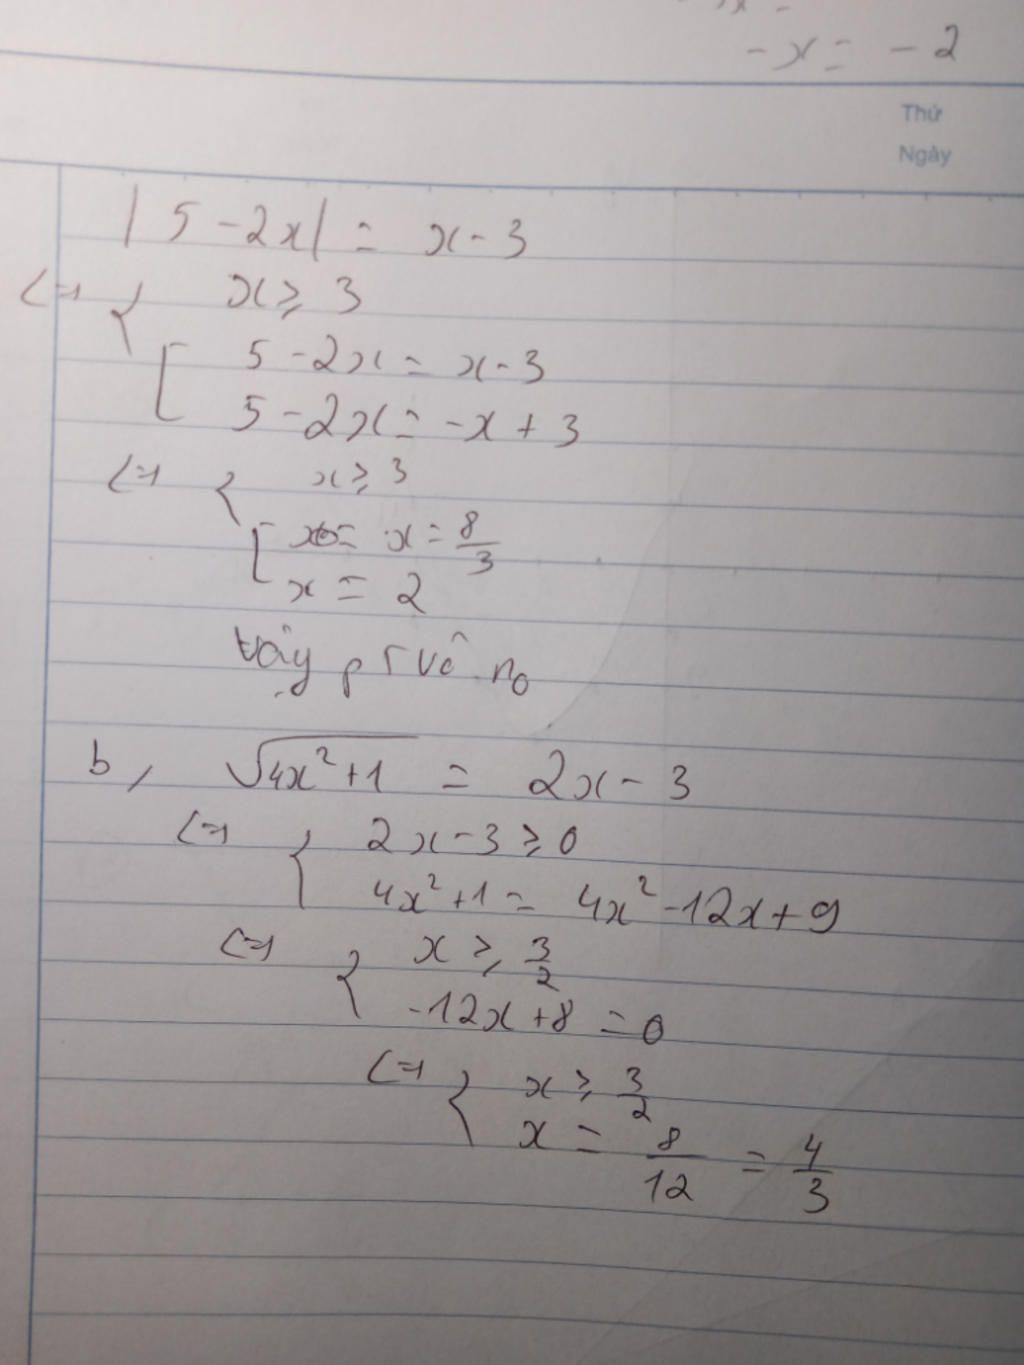 -x = -2
Thứ
Ngày
|5 - 2x| = x - 3
<=> { x ≥ 3
[ 5 - 2x = x - 3
5 - 2x = -x + 3
<=> { x ≥ 3
[ x = 8/3
x = 2
Vậy pt vô no
b, √4x²+1 = 2x - 3
<=> { 2x - 3 ≥ 0
4x² + 1 = 4x² - 12x + 9
<=> { x ≥ 3/2
-12x + 8 = 0
<=> { x ≥ 3/2
x = 8/12 = 4/3